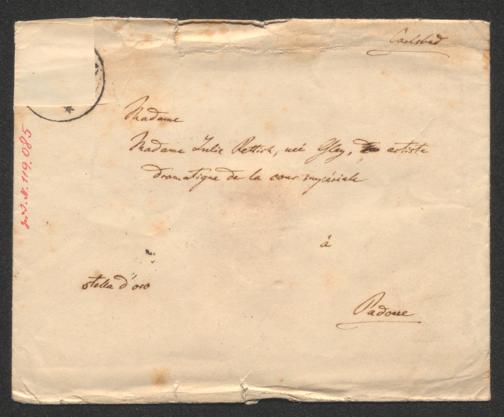 Carlsbad
Madame
Madame Julie Rettich, née Gley, artiste
dramatique de la cour impériale
à
stella d'oro
Padoue
I.N. 119.085